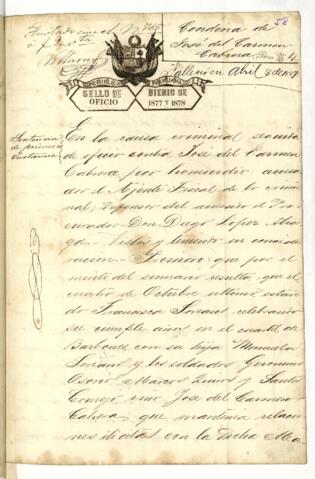 58
Condena de
José del Carmen
Cabrera
4
Abril
SELLO DE
OFICIO
BIENIO DE
1877 Y 1878
Sentencia
de primera
instancia
En la causa criminal seguida
de oficio contra José del Carmen
Cabrera por homicidio acusa
dor el Ajente Fiscal de lo crimi
nal; defensor del acusado el Pro
curador Don Diego Lopez Alia
ga. Vistos y teniendo en conside
racion. Primero que por el
mérito del sumario resulta que el
cuatro de Octubre ultimo estan
do Francisca Soriano celebrando
su cumple años en el cuartel de
Barbones con su hija Manuela
Soriano y los soldados Geronimo
Osorio, Marcos y Santos
vino José del Carmen
Cabrera que mantenia relacio
nes ilicitas con la dicha Ma